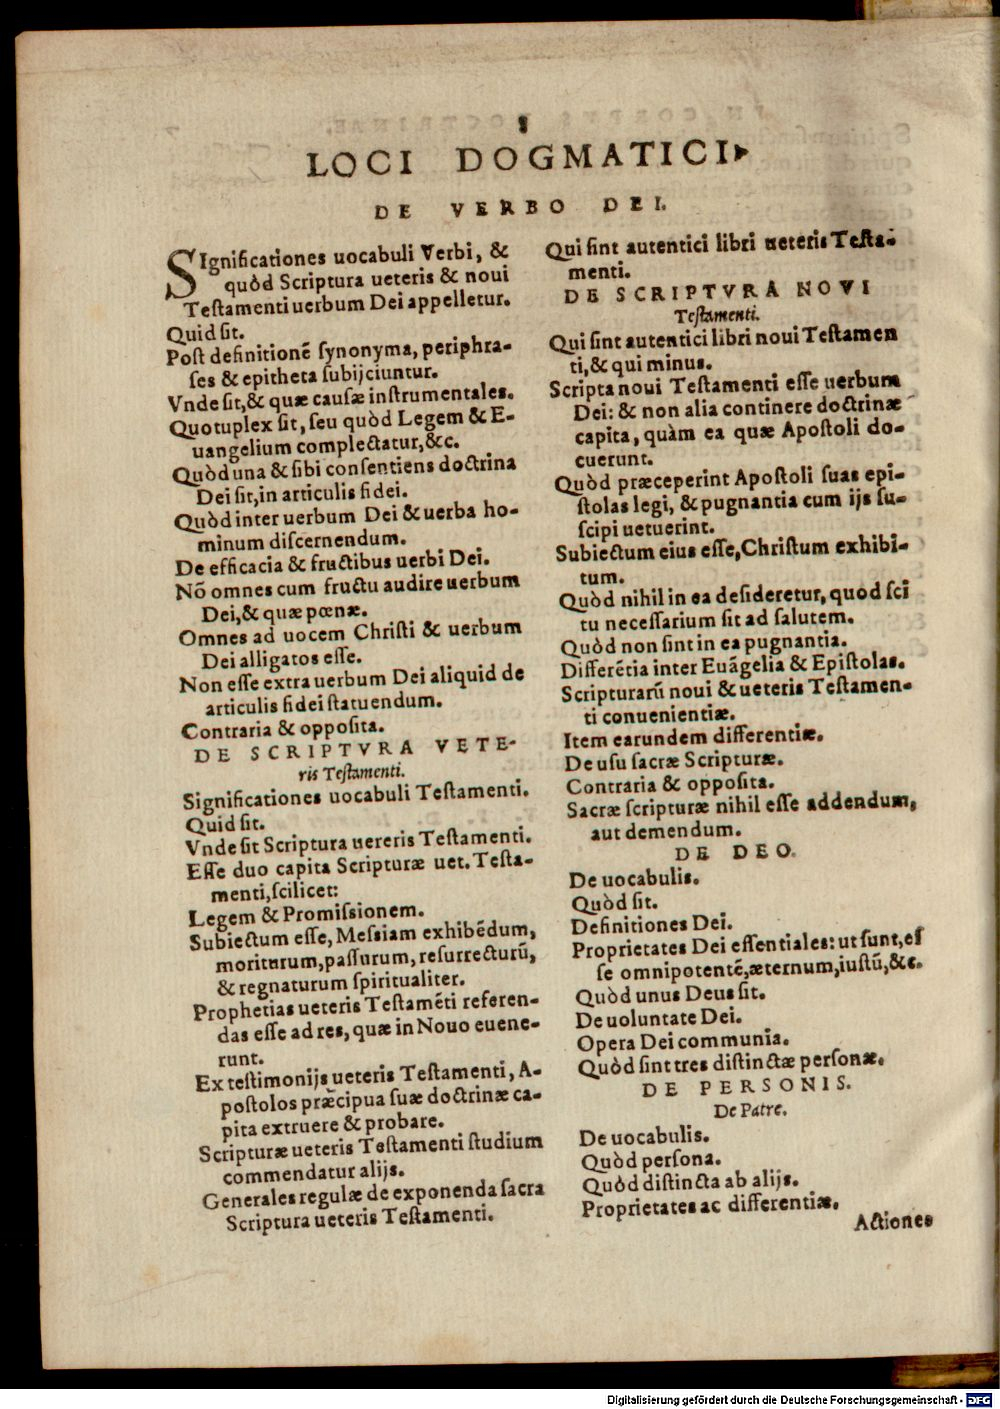 8
LOCI DOGMATICI
DE VERBO DEI.
SIgnificationes uocabuli Verbi, &
quòd Scriptura ueteris & noui
Testamenti uerbum Dei appelletur.
Quid sit.
Post definitionē synonyma, periphra-
ses & epitheta subijciuntur.
Vnde sit, & quæ causæ instrumentales.
Quotuplex sit, seu quòd Legem & E-
uangelium complectatur, &c.
Quòd una & sibi consentiens doctrina
Dei sit, in articulis fidei.
Quòd inter uerbum Dei & uerba ho-
minum discernendum.
De efficacia & fructibus uerbi Dei.
Nō omnes cum fructu audire uerbum
Dei, & quæ pœnæ.
Omnes ad uocem Christi & uerbum
Dei alligatos esse.
Non esse extra uerbum Dei aliquid de
articulis fidei statuendum.
Contraria & opposita.
DE SCRIPTVRA VETE-
ris Testamenti.
Significationes uocabuli Testamenti.
Quid sit.
Vnde sit Scriptura uereris Testamenti.
Esse duo capita Scripturæ uet. Testa-
menti, scilicet:
Legem & Promissionem.
Subiectum esse, Messiam exhibēdum,
moriturum, passurum, resurrecturū,
& regnaturum spiritualiter.
Prophetias ueteris Testamēti referen-
das esse ad res, quæ in Nouo euene-
runt.
Ex testimonijs ueteris Testamenti, A-
postolos præcipua suæ doctrinæ ca-
pita extruere & probare.
Scripturæ ueteris Testamenti studium
commendatur alijs.
Generales regulæ de exponenda sacra
Scriptura ueteris Testamenti.
Qui sint autentici libri ueteris Testa-
menti.
DE SCRIPTVRA NOVI
Testamenti.
Qui sint autentici libri noui Testamen
ti, & qui minus.
Scripta noui Testamenti esse uerbum
Dei: & non alia continere doctrinæ
capita, quàm ea quæ Apostoli do-
cuerunt.
Quòd præceperint Apostoli suas epi-
stolas legi, & pugnantia cum ijs su-
scipi uetuerint.
Subiectum eius esse, Christum exhibi-
tum.
Quòd nihil in ea desideretur, quod sci
tu necessarium sit ad salutem.
Quòd non sint in ea pugnantia.
Differētia inter Euāgelia & Epistolas.
Scripturarū noui & ueteris Testamen-
ti conuenientiæ.
Item earundem differentiæ.
De usu sacræ Scripturæ.
Contraria & opposita.
Sacræ scripturæ nihil esse addendum,
aut demendum.
DE DEO.
De uocabulis.
Quòd sit.
Definitiones Dei.
Proprietates Dei essentiales: ut sunt, es
se omnipotentē, æternum, iustū, &c.
Quòd unus Deus sit.
De uoluntate Dei.
Opera Dei communia.
Quòd sint tres distinctæ personæ.
DE PERSONIS.
De Patre.
De uocabulis.
Quòd persona.
Quòd distincta ab alijs.
Proprietates ac differentiæ.
Actiones
Digitalisierung gefördert durch die Deutsche Forschungsgemeinschaft - DFG